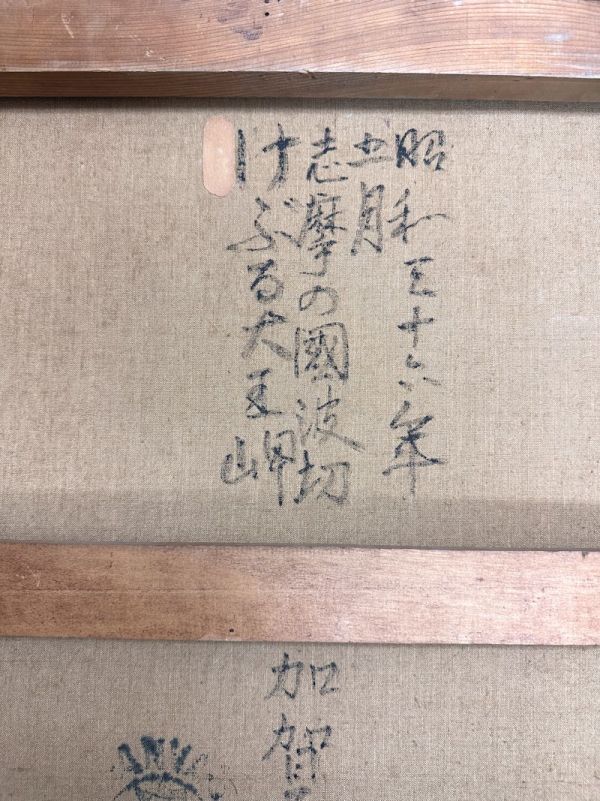 昭和三十六年
五月
志摩の國波切
けぶる大王岬
加賀